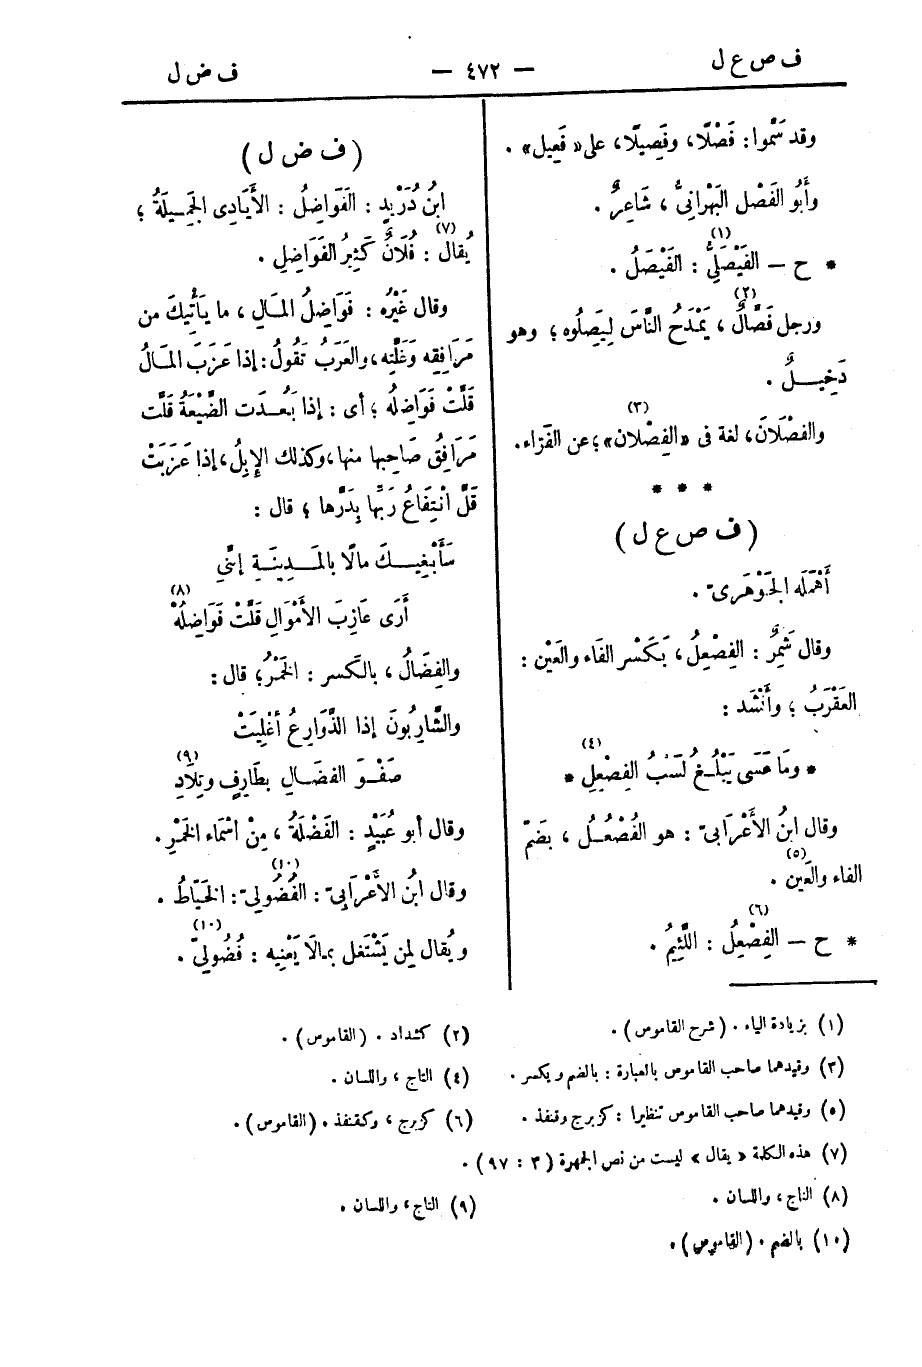 ف ص ع ل
— ٤٧٢ —
ف ض ل
وقد سَمَّوا: فَصْلًا، وفَصِيلًا، على « فَعِيل » .
وأَبُو الفَضْل البَهْرانىُّ ، شَاعِرٌ .
* ح — الفَيْصَلِىُّ (١) : الفَيْصَلُ .
ورجل فَصَّالٌ (٢) ، يَمْدَحُ النَّاسَ لِيَصِلُوه ؛ وهو
دَخِيـلٌ .
والفِصْلَانَ، لغة فى « الفِصْلان » (٣) ؛ عن الفَرّاء.
* * *
( ف ص ع ل )
أَهْمَلَه الجَوْهَرىّ .
وقال شَمِرٌ : الفِصْعِلُ ، بَكَسْر الفَاء والعَيْن :
العَقْرَبُ ؛ وأَنْشَد :
* ومَا عَسَى يَبْلُـغُ لَسْبُ الفِصْعِلِ (٤) *
وقال ابنُ الأَعْرَابىّ : هو الفُصْعُـل ، بضَمّ
الفاء والعَين (٥) .
* ح — الفِصْعِلُ (٦) : اللَّئِيمُ .
( ف ض ل )
ابنُ دُرَيْدٍ : الفَوَاضِلُ : الأَيَادِى الجَمِـيلَةُ ؛
يُقال (٧) : فُلَانٌ كَثِيرُ الفَوَاضِلِ .
وقال غَيْرُه : فَوَاضِلُ المـالِ ، ما يَأْتِيكَ من
مَرَافِقِه وَغَلَّتِه ، والعَرَبُ تَقُولُ : إذا عَزَبَ المَـالُ
قَلَّتْ فَوَاضِلُه ؛ أى : إذا بَعُـدَت الضَّيْعَةُ قَلَّت
مَرَافِقُ صَاحِبها منها، وكذلك الإِبِلُ، إذا عَزَبَتْ
قَلَّ انْتِفَاعُ رَبِّها بِدَرِّها ؛ قال :
سَأَبْغِيـكَ مالًا بالمَـدِينَـةِ إنَّنِى
أَرَى عَازِبَ الأَمْوَالِ قَلَّتْ فَوَاضِلُهْ (٨)
والفِضَالُ ، بالكَسر : الخَمْرُ ؛ قال :
والشَّارِبُونَ إذا الذَّوَارِعُ أُغْلِيَتْ
صَفْـوَ الفِضَـالِ بِطَارِفٍ وتِلَادِ (٩)
وقال أبو عُبَيْدٍ : الفَضْلَةُ ، مِنْ أسْمَاء الخَمْرِ .
وقال ابنُ الأَعْرَابِىّ : الفُضُولِىّ (١٠) : الخَيّاطُ .
ويُقال لمن يَشْتَغل بمـالَا يَعْنِيه : فُضُولِىّ (١٠) .
(١) بزيادة الياء . (شرح القاموس) .
(٢) كشداد . (القاموس) .
(٣) وقيدهما صاحب القاموس بالعبارة : بالضم ويكسر .
(٤) التاج ، واللسان .
(٥) وقيدهما صاحب القاموس تنظيرا : كزبرج وقنفذ .
(٦) كزبرج ، وكقنفذ . (القاموس) .
(٧) هذه الكلمة « يقال » ليست من نص الجمهرة (٣ : ٩٧) .
(٨) التاج ، واللسان .
(٩) التاج ، واللسان .
(١٠) بالضم . (القاموس) .